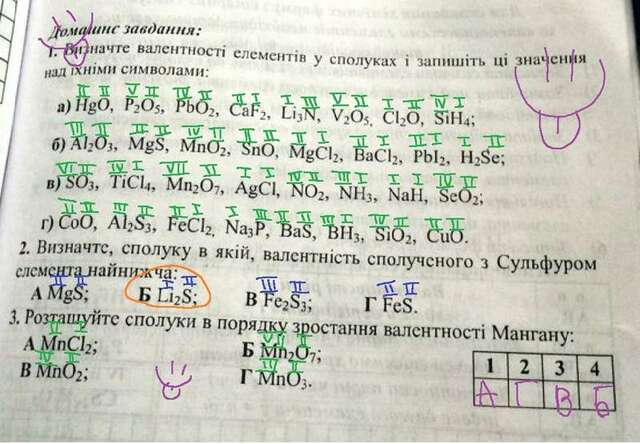 Домашнє завдання:
1. Визначте валентності елементів у сполуках і запишіть ці значення
над їхніми символами:
II II V II IV II II I I III V II I II IV I
а) HgO, P₂O₅, PbO₂, CaF₂, Li₃N, V₂O₅, Cl₂O, SiH₄;
III II II II IV II II II II I II I II I I II
б) Al₂O₃, MgS, MnO₂, SnO, MgCl₂, BaCl₂, PbI₂, H₂Se;
VI II IV I VII II I I IV II III I I I IV II
в) SO₃, TiCl₄, Mn₂O₇, AgCl, NO₂, NH₃, NaH, SeO₂;
II II III II II I I III II II III I IV II II II
г) CoO, Al₂S₃, FeCl₂, Na₃P, BaS, BH₃, SiO₂, CuO.
2. Визначте, сполуку в якій, валентність сполученого з Сульфуром
елемента найнижча:
II II I II III II II II
А MgS; Б Li₂S; В Fe₂S₃; Г FeS.
3. Розташуйте сполуки в порядку зростання валентності Мангану:
II I VII II
А MnCl₂; Б Mn₂O₇;
IV II
В MnO₂; Г MnO₃.
1 2 3 4
А Г В Б